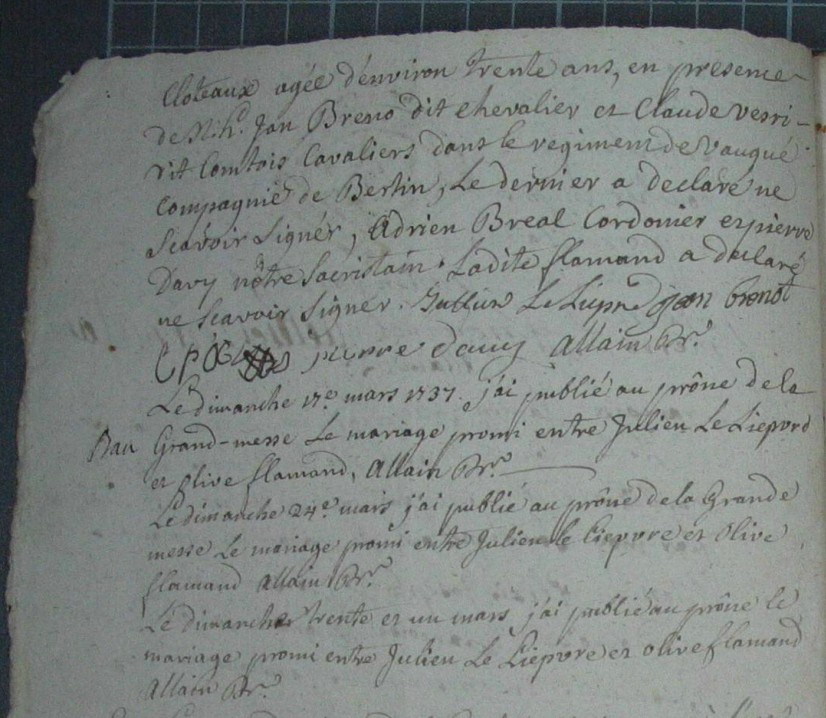 Cloteaux agée d'environ trente ans, en presence
de Nih.s Jan Breno dit chevalier et Claude Vesri-
dit Comtois Cavaliers dans le regiment de Vaugué
Compagnie de Bertin, Le dernier a declaré ne
Scavoir Signér, Adrien Breal Cordonier et pierre
Davy nôtre Sacristain. Ladite flamand a declaré
ne Scavoir Signer. Jullien Le Liepu jean brenot
pierre davy Allain Pr.e
Le dimanche 17.e mars 1737. j'ai publié au prône de la
Ban Grand-messe Le mariage promi entre Julien Le Liepvre
et Olive flamand, Allain Pr.e
Le dimanche 24.e mars j'ai publié au prône de la Grande
messe Le mariage promi entre Julien le Liepvre et Olive
flamand Allain Pr.e
Le dimanche trente et un mars j'ai publié au prône le
mariage promi entre Julien Le Liepvre et Olive flamand
Allain Pr.e